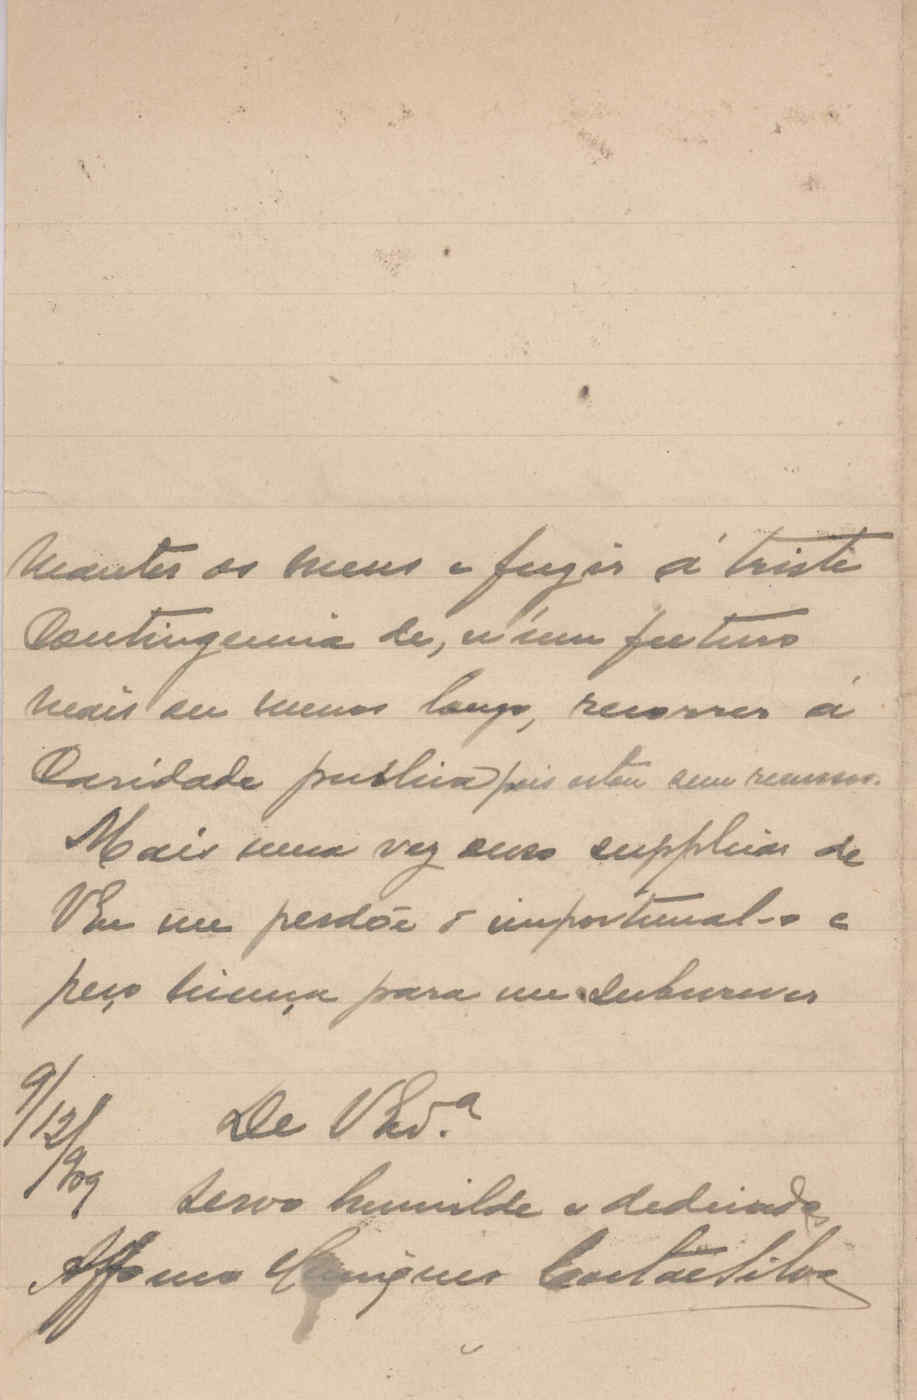 manter os meus e fugir á triste
Contingencia de, n'um futuro
mais ou menos longo, recorrer á
Caridade publica pois estou sem recursos.
Mais uma vez ouso supplicar de
VEx me perdôe o importunal-o e
peço licença para me subscrever
9/12/909
De VExª
servo humilde e dedicado
Affonso Henriques Costa e Silva